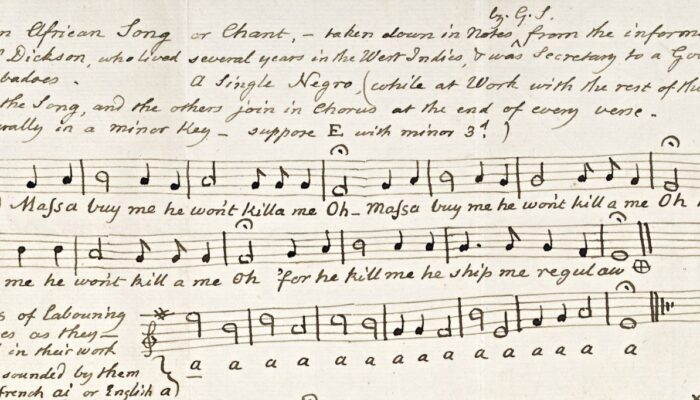 by G.S.
n African Song or Chant, – taken down in Notes, from the inform
Dickson, who lived several years in the West Indies, & was Secretary to a Go
badoes. A Single Negro, (while at Work with the rest of the
the Song, and the others join in Chorus at the end of every verse.
rally in a minor Key – suppose E with minor 3d)
Maſsa buy me he won't killa me Oh – Maſsa buy me he won't kill a me Oh
me he won't kill a me Oh 'for he kill me he ship me regulaw ⊕
s of Labouring
es as they –
in their work
sounded by them
french ai or English a)
a a a a a a a a a a a a a a